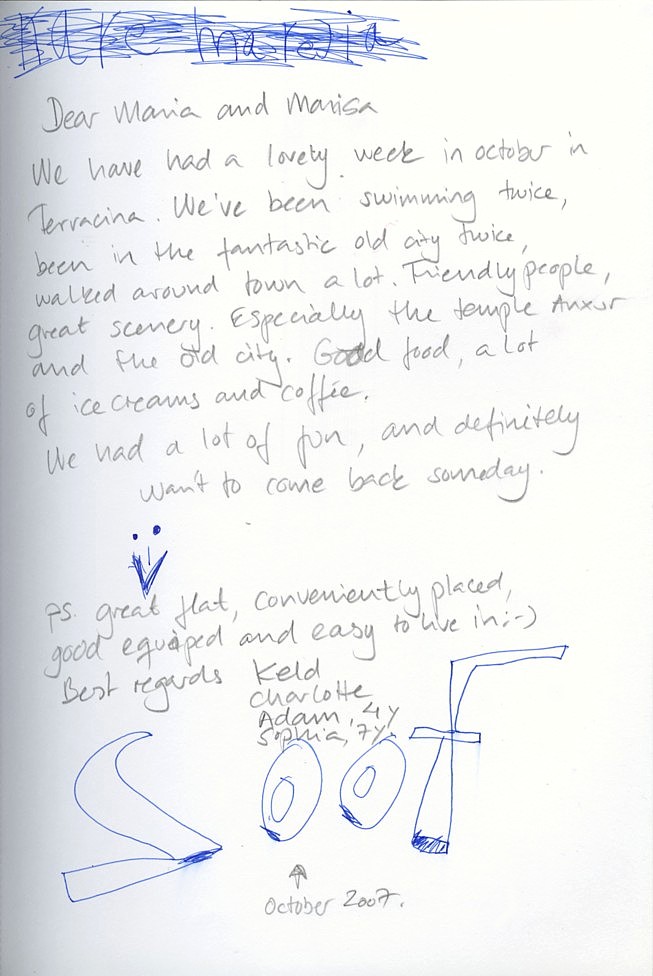 Dear Maria and Marisa
We have had a lovely week in october in
Terracina. We've been swimming twice,
been in the fantastic old city twice,
walked around town a lot. Friendly people,
great scenery. Especially the temple Anxur
and the old city. Good food, a lot
of icecreams and coffee.
We had a lot of fun, and definitely
want to come back someday.
PS. great flat, conveniently placed,
good equiped and easy to live in :-)
Best regards Keld
Charlotte
Adam, 4y
Sophia, 7y.
October 2007.